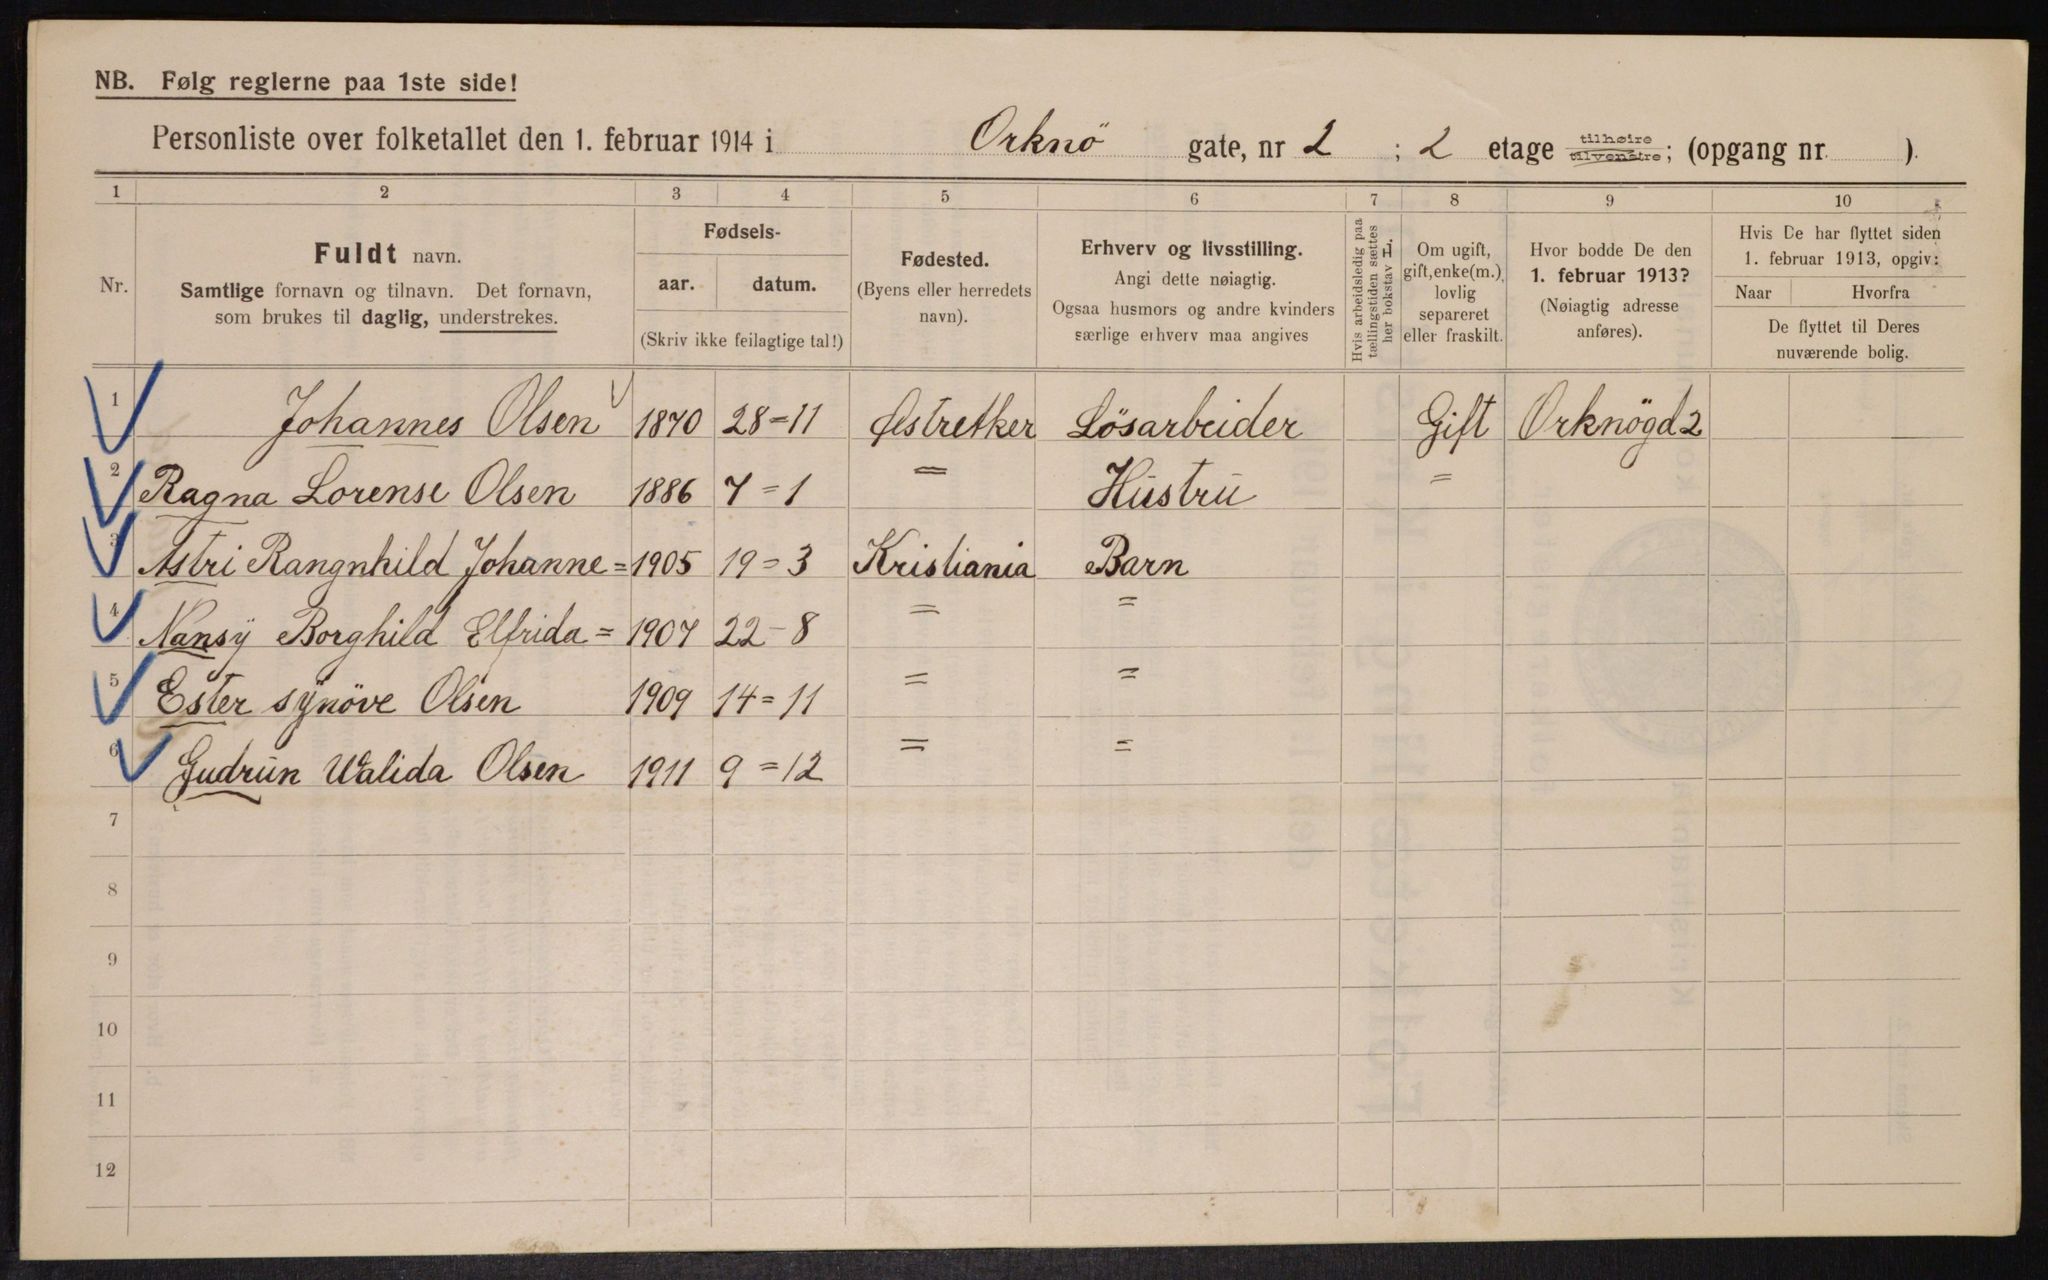 NB. Følg reglerne paa 1ste side!
Personliste over folketallet den 1. februar 1914 i Orknö gate, nr 2 ; 2 etage tilhøire tilvenstre; (opgang nr. ).
1 2 3 4 5 6 7 8 9 10
Nr.
Fuldt navn.
Samtlige fornavn og tilnavn. Det fornavn,
som brukes til daglig, understrekes.
Fødsels-
aar. datum.
(Skriv ikke feilagtige tal!)
Fødested.
(Byens eller herredets
navn).
Erhverv og livsstilling.
Angi dette nøiagtig.
Ogsaa husmors og andre kvinders
særlige erhverv maa angives
Hvis arbeidsledig paa
tællingstiden sættes
her bokstav L.
Om ugift,
gift, enke(m.),
lovlig
separeret
eller fraskilt.
Hvor bodde De den
1. februar 1913?
(Nøiagtig adresse
anføres).
Hvis De har flyttet siden
1. februar 1913, opgiv:
Naar Hvorfra
De flyttet til Deres
nuværende bolig.
1 Johannes Olsen 1870 28=11 Løsarbeider Gift Orknögd 2
2 Ragna Lorense Olsen 1886 7=1 = Hustru =
3 Astri Rangnhild Johanne = 1905 19=3 Kristiania Barn
4 Nansÿ Borghild Elfrida = 1907 22-8 = =
5 Ester sÿnöve Olsen 1909 14=11 = =
6 Gudrun Walida Olsen 1911 9=12 = =
7
8
9
10
11
12